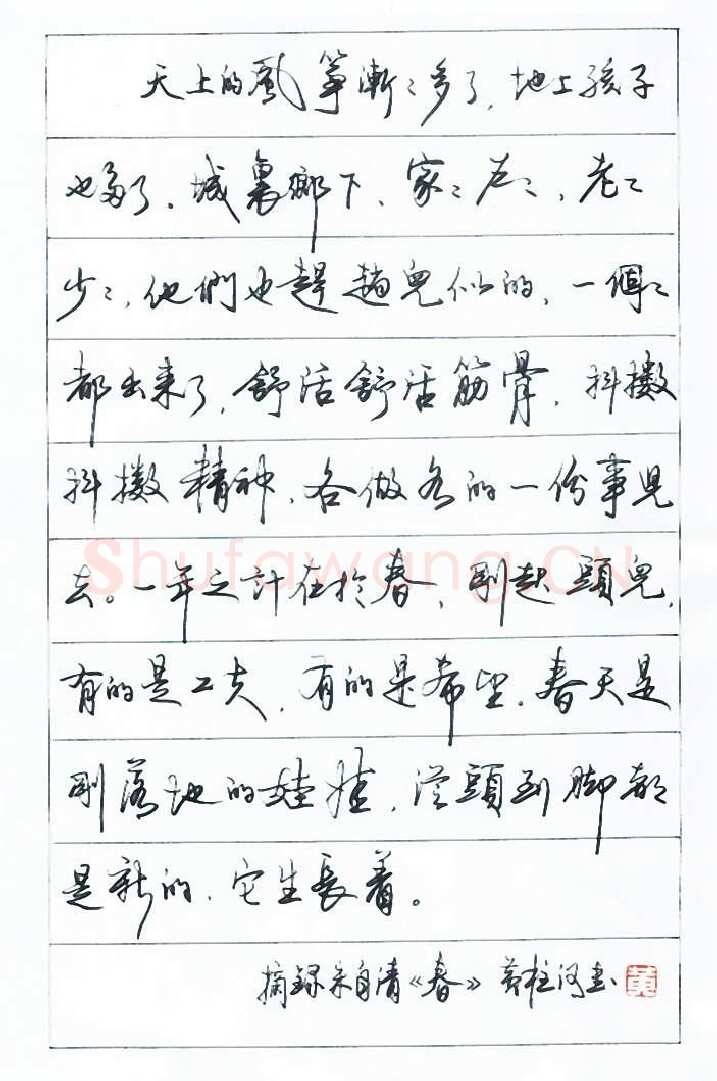 天上的風筝漸〻多了，地上孩子
也多了。城裏鄉下、家〻户〻，老〻
少〻，他們也趕趟兒似的，一個〻
都出来了，舒活舒活筋骨，抖擻
抖擻精神，各做各的一份事兒
去。一年之計在於春，剛起頭兒，
有的是工夫，有的是希望。春天是
剛落地的娃娃，從頭到脚都
是新的，它生長着。
摘録朱自清《春》黄柱河書
黄
Shufawang.CN